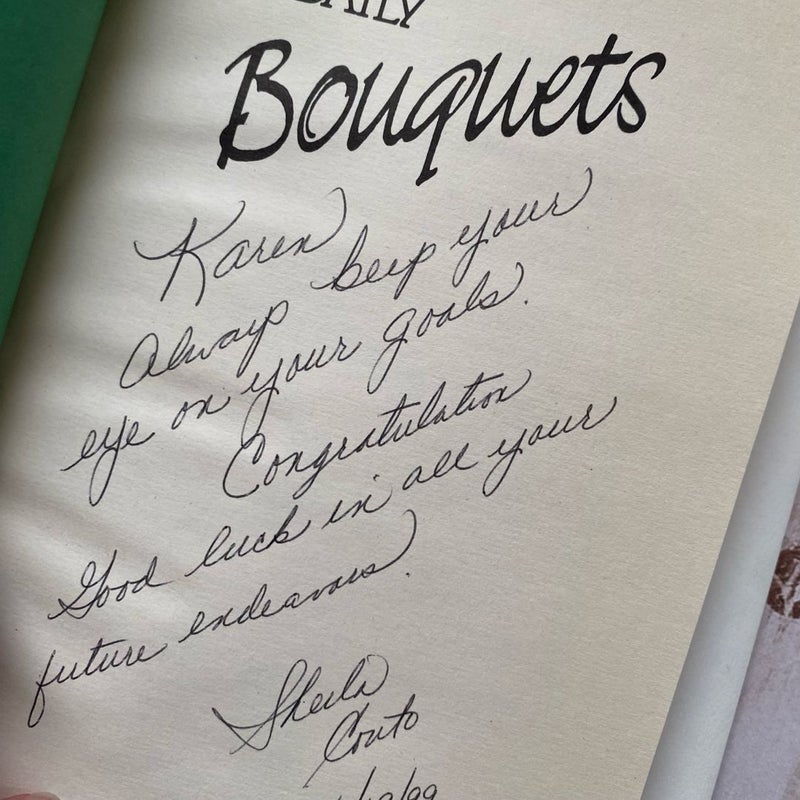 DAILY
Bouquets
Karen
Always keep your
eye on your goals.
Congratulation
Good luck in all your
future endeavors.
Sheila
Couto